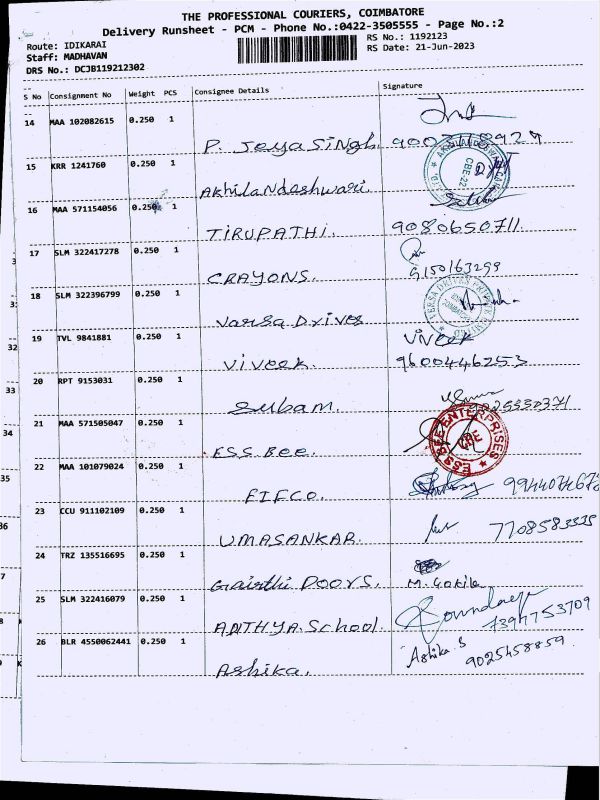 THE PROFESSIONAL COURIERS, COIMBATORE
Delivery Runsheet - PCM - Phone No.:0422-3505555 - Page No.:2
Route: IDIKARAI
RS No.: 1192123
Staff: MADHAVAN
RS Date: 21-Jun-2023
DRS No.: DCJB119212302
S No Consignment No Weight PCS Consignee Details Signature
14 MAA 102082615 0.250 1
P. JeyaSingh.
15 KRR 1241760 0.250 1
Akhilandeshwari.
16 MAA 571154056 0.250 1
TIRUPATHI. 9080650711.
17 SLM 322417278 0.250 1
CRAYONS. 9150163299
18 SLM 322396799 0.250 1
Varsa Drives
19 TVL 9841881 0.250 1 VIVEEK
Viveek. 9600446253
20 RPT 9153031 0.250 1
Subam.
21 MAA 571505047 0.250 1
ESS BEE ENTERPRISES
ESS.Bee.
22 MAA 101079024 0.250 1
FIFCO.
23 CCU 911102109 0.250 1
UMASANKAR.
24 TRZ 135516695 0.250 1
Doors. M. Gokila
25 SLM 322416079 0.250 1
School. 7397753709
26 BLR 4550062441 0.250 1 Ashika.S
Ashika. 9025458859